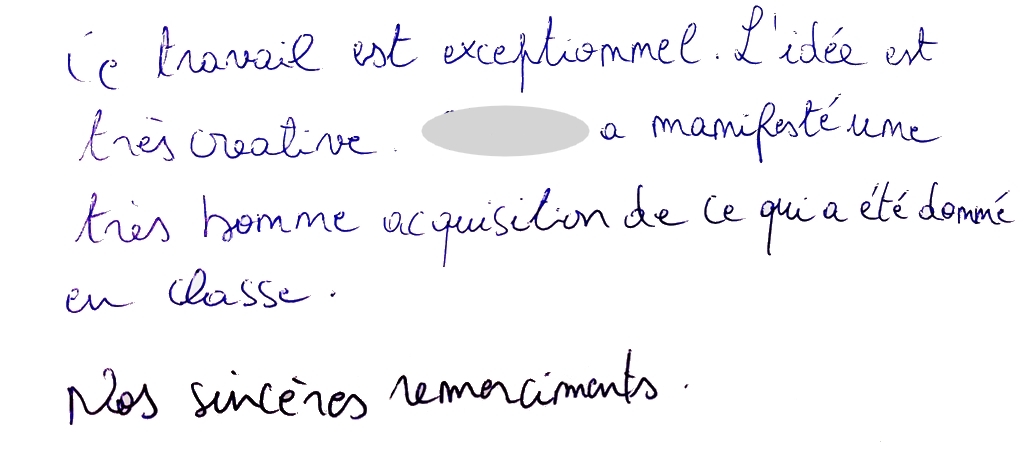 Ce travail est exceptionnel. L'idée est
très creative. a manifesté une
très bonne acquisition de ce qui a été donné
en classe.
Nos sincères remerciments.